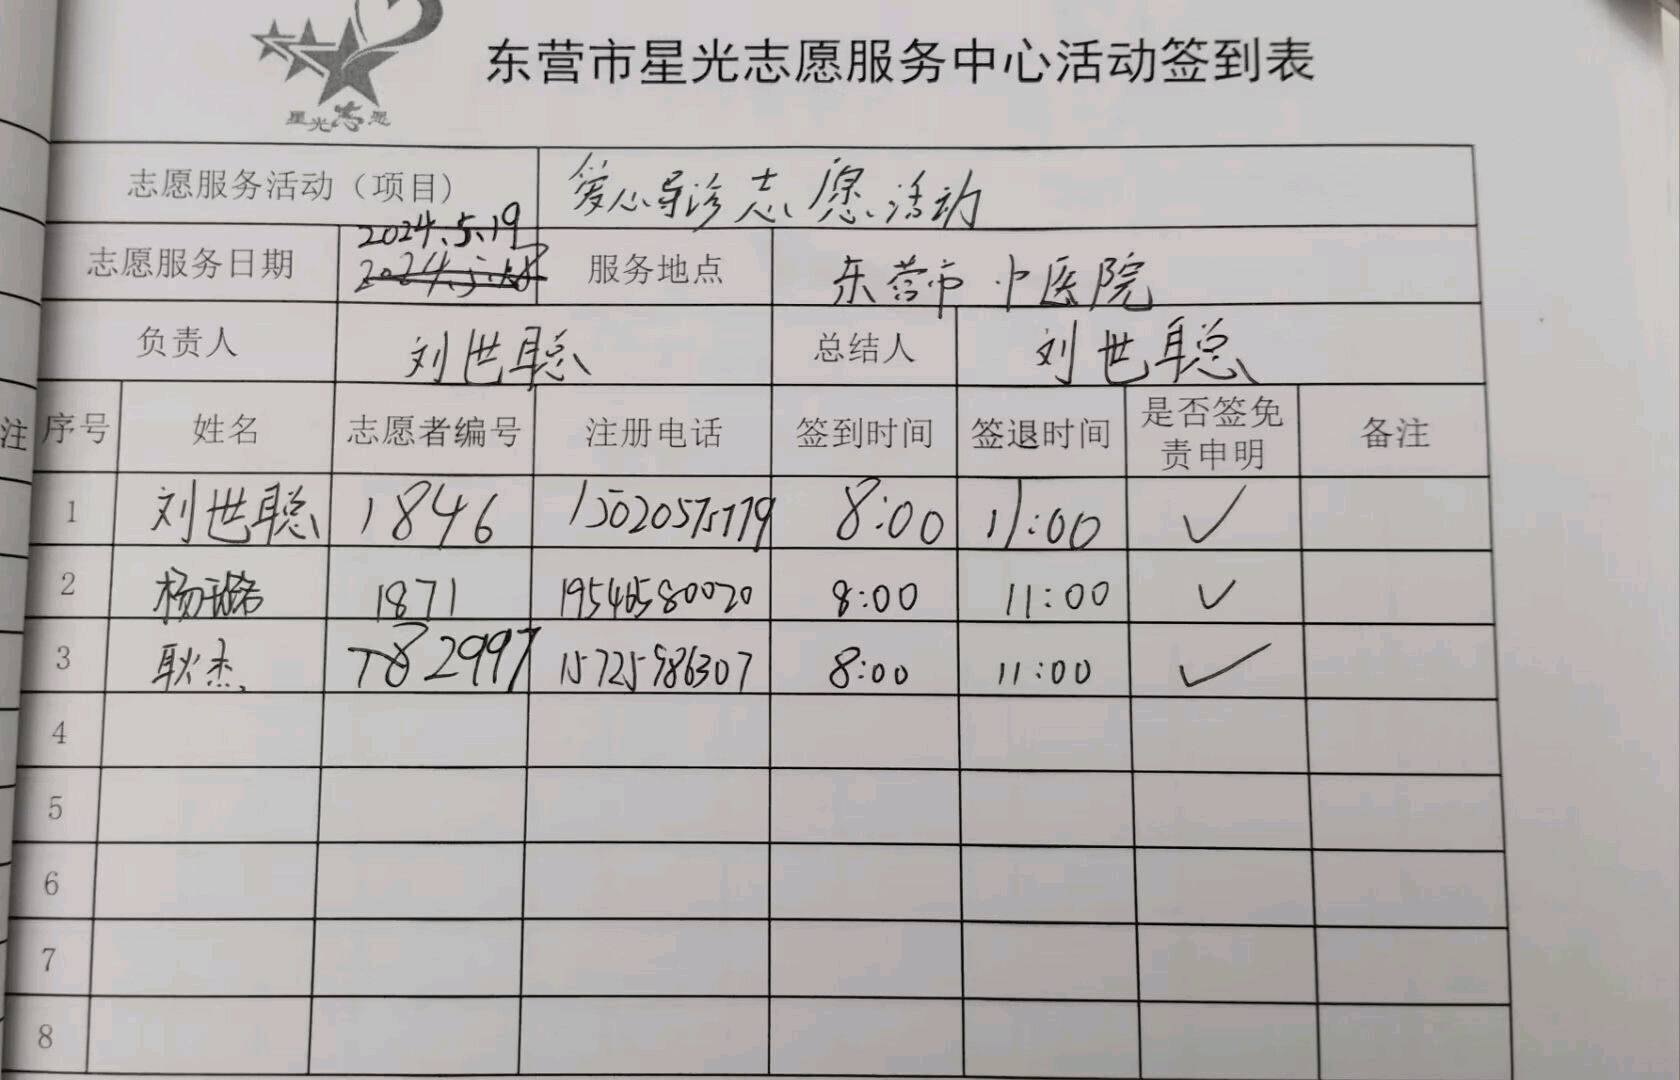 星光志愿
东营市星光志愿服务中心活动签到表
志愿服务活动（项目） 爱心导诊志愿活动
志愿服务日期 2024.5.19 服务地点 东营市中医院
2024.5.18
负责人 刘世聪 总结人 刘世聪
注 序号 姓名 志愿者编号 注册电话 签到时间 签退时间 是否签免责申明 备注
1 刘世聪 1846 15020575779 8:00 11:00 ✓
2 杨璐 1871 19546580020 8:00 11:00 ✓
3 耿杰 782997 15725986307 8:00 11:00 ✓
4
5
6
7
8